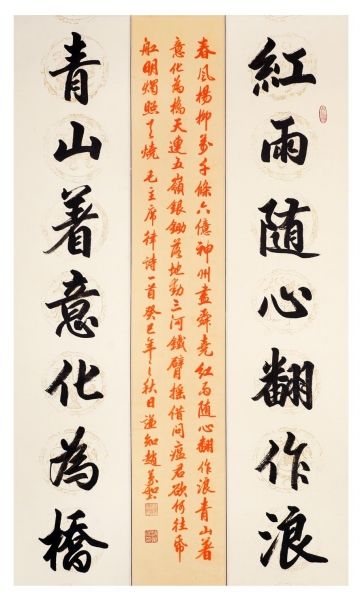 紅雨随心翻作浪
春風楊柳萬千條六億神州盡舜堯紅雨随心翻作浪青山着
意化為橋天連五嶺銀鋤落地動三河鐵臂搖借問瘟君欲何往紙
船明燭照天燒 毛主席律詩一首癸巳年之秋日
青山着意化為橋